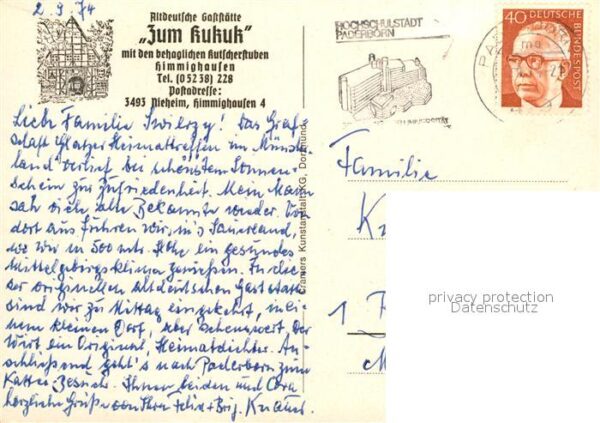 2.9.74
Altdeutsche Gaststätte
„Zum Kukuk"
mit den behaglichen Kutscherstuben
Himmighausen
Tel. (05238) 228
Postadresse:
3493 Nieheim, Himmighausen 4
Liebe Familie! Das Graf-
schaft Glatzer Heimattreffen im Münster-
land verlief bei schönstem Sonnen-
schein zur Zufriedenheit. Mein Mann
sah viele alte Bekannte wieder. Von
dort aus fuhren wir, ins Sauerland,
wo wir in 500 mtr. Höhe ein gesundes
Mittelgebirgsklima genießen. In die-
ser originellen altdeutschen Gaststätte
sind wir zu Mittag eingekehrt, in ei-
nem kleinen Dorf, aber sehenswert. Der
Wirt ein Original, Heimatdichter. An-
schließend geht's nach Paderborn zum
Kaffee Besuch. Ihnen beiden und
herzliche Grüße von Ihren Felix + Brig.
Cramers Kunstanstalt KG, Dortmund
HOCHSCHULSTADT
PADERBORN
40 DEUTSCHE
BUNDESPOST
Familie
1
privacy protection
Datenschutz